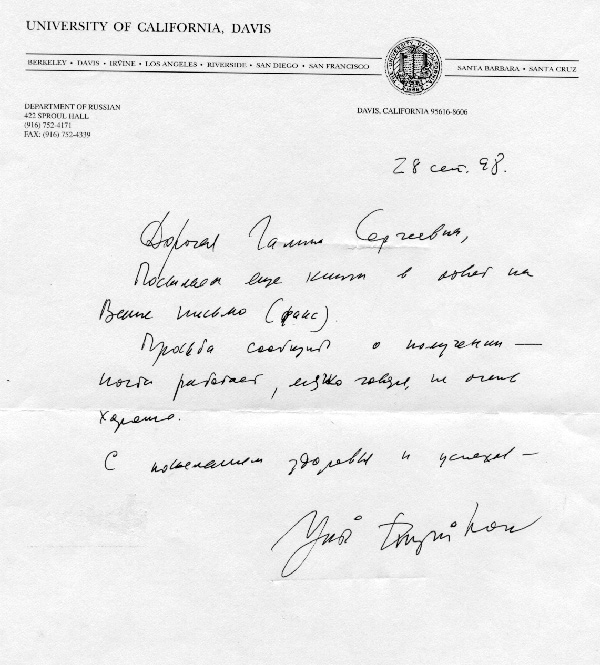 UNIVERSITY OF CALIFORNIA, DAVIS
BERKELEY • DAVIS • IRVINE • LOS ANGELES • RIVERSIDE • SAN DIEGO • SAN FRANCISCO
SANTA BARBARA • SANTA CRUZ
DEPARTMENT OF RUSSIAN
422 SPROUL HALL
(916) 752-4171
FAX: (916) 752-4339
DAVIS, CALIFORNIA 95616-8606
28 сент. 98.
Дорогая Галина Сергеевна,
Посылаем еще книги в ответ на
Ваше письмо (факс).
Просьба сообщить о получении —
почта работает, мягко говоря, не очень
хорошо.
С пожеланием здоровья и успехов —